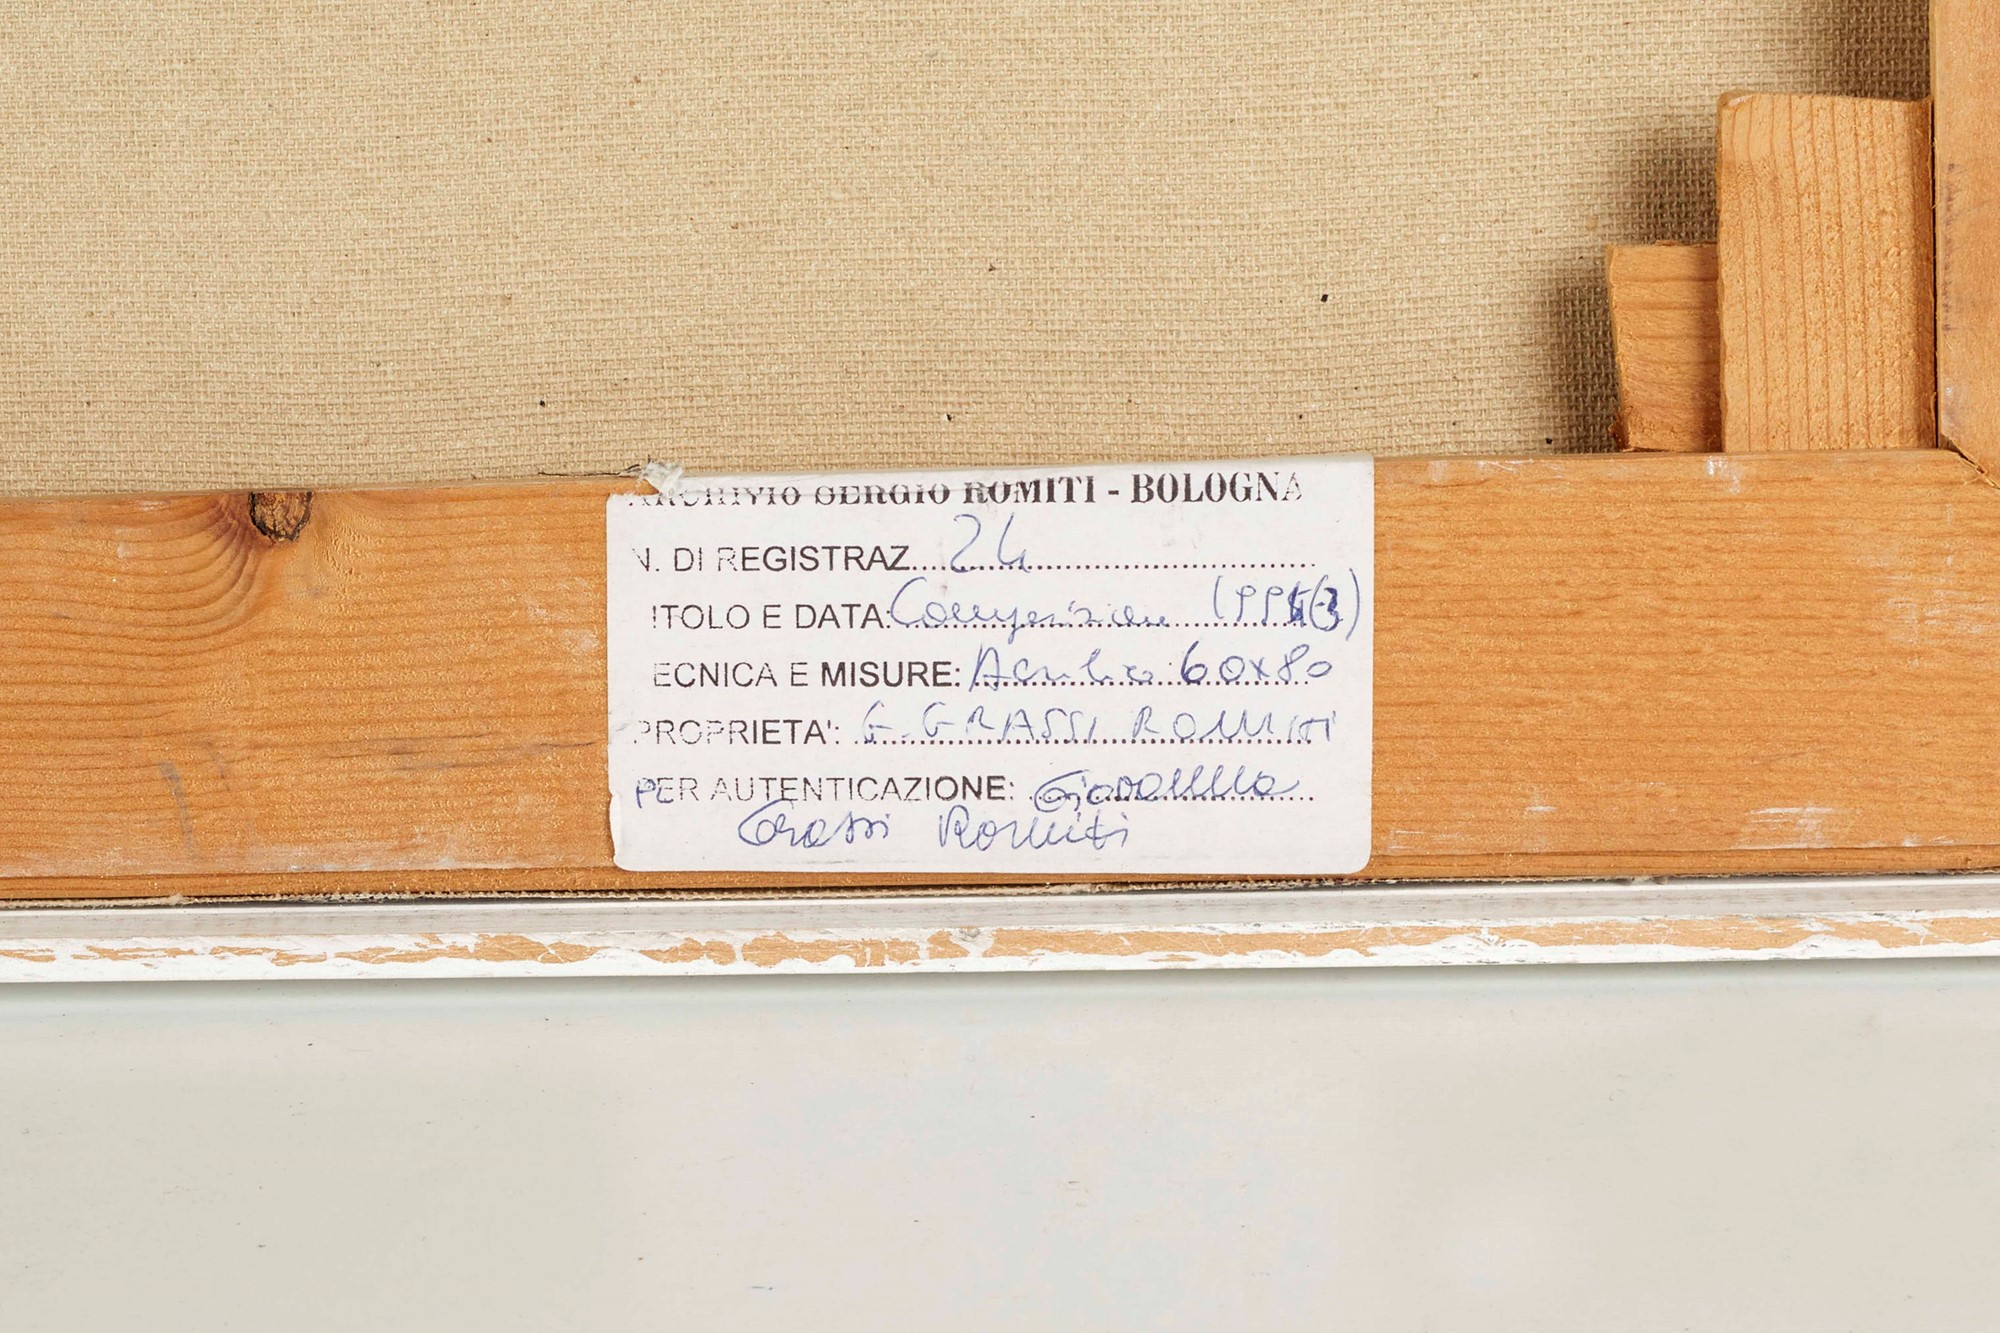 ARCHIVIO SERGIO ROMITI - BOLOGNA
N. DI REGISTRAZ.... 24
ITOLO E DATA: Composizione
ECNICA E MISURE: Acrilico 60x80
PROPRIETA': G. GRASSI ROMITI
PER AUTENTICAZIONE: Giovanna
Grassi Romiti